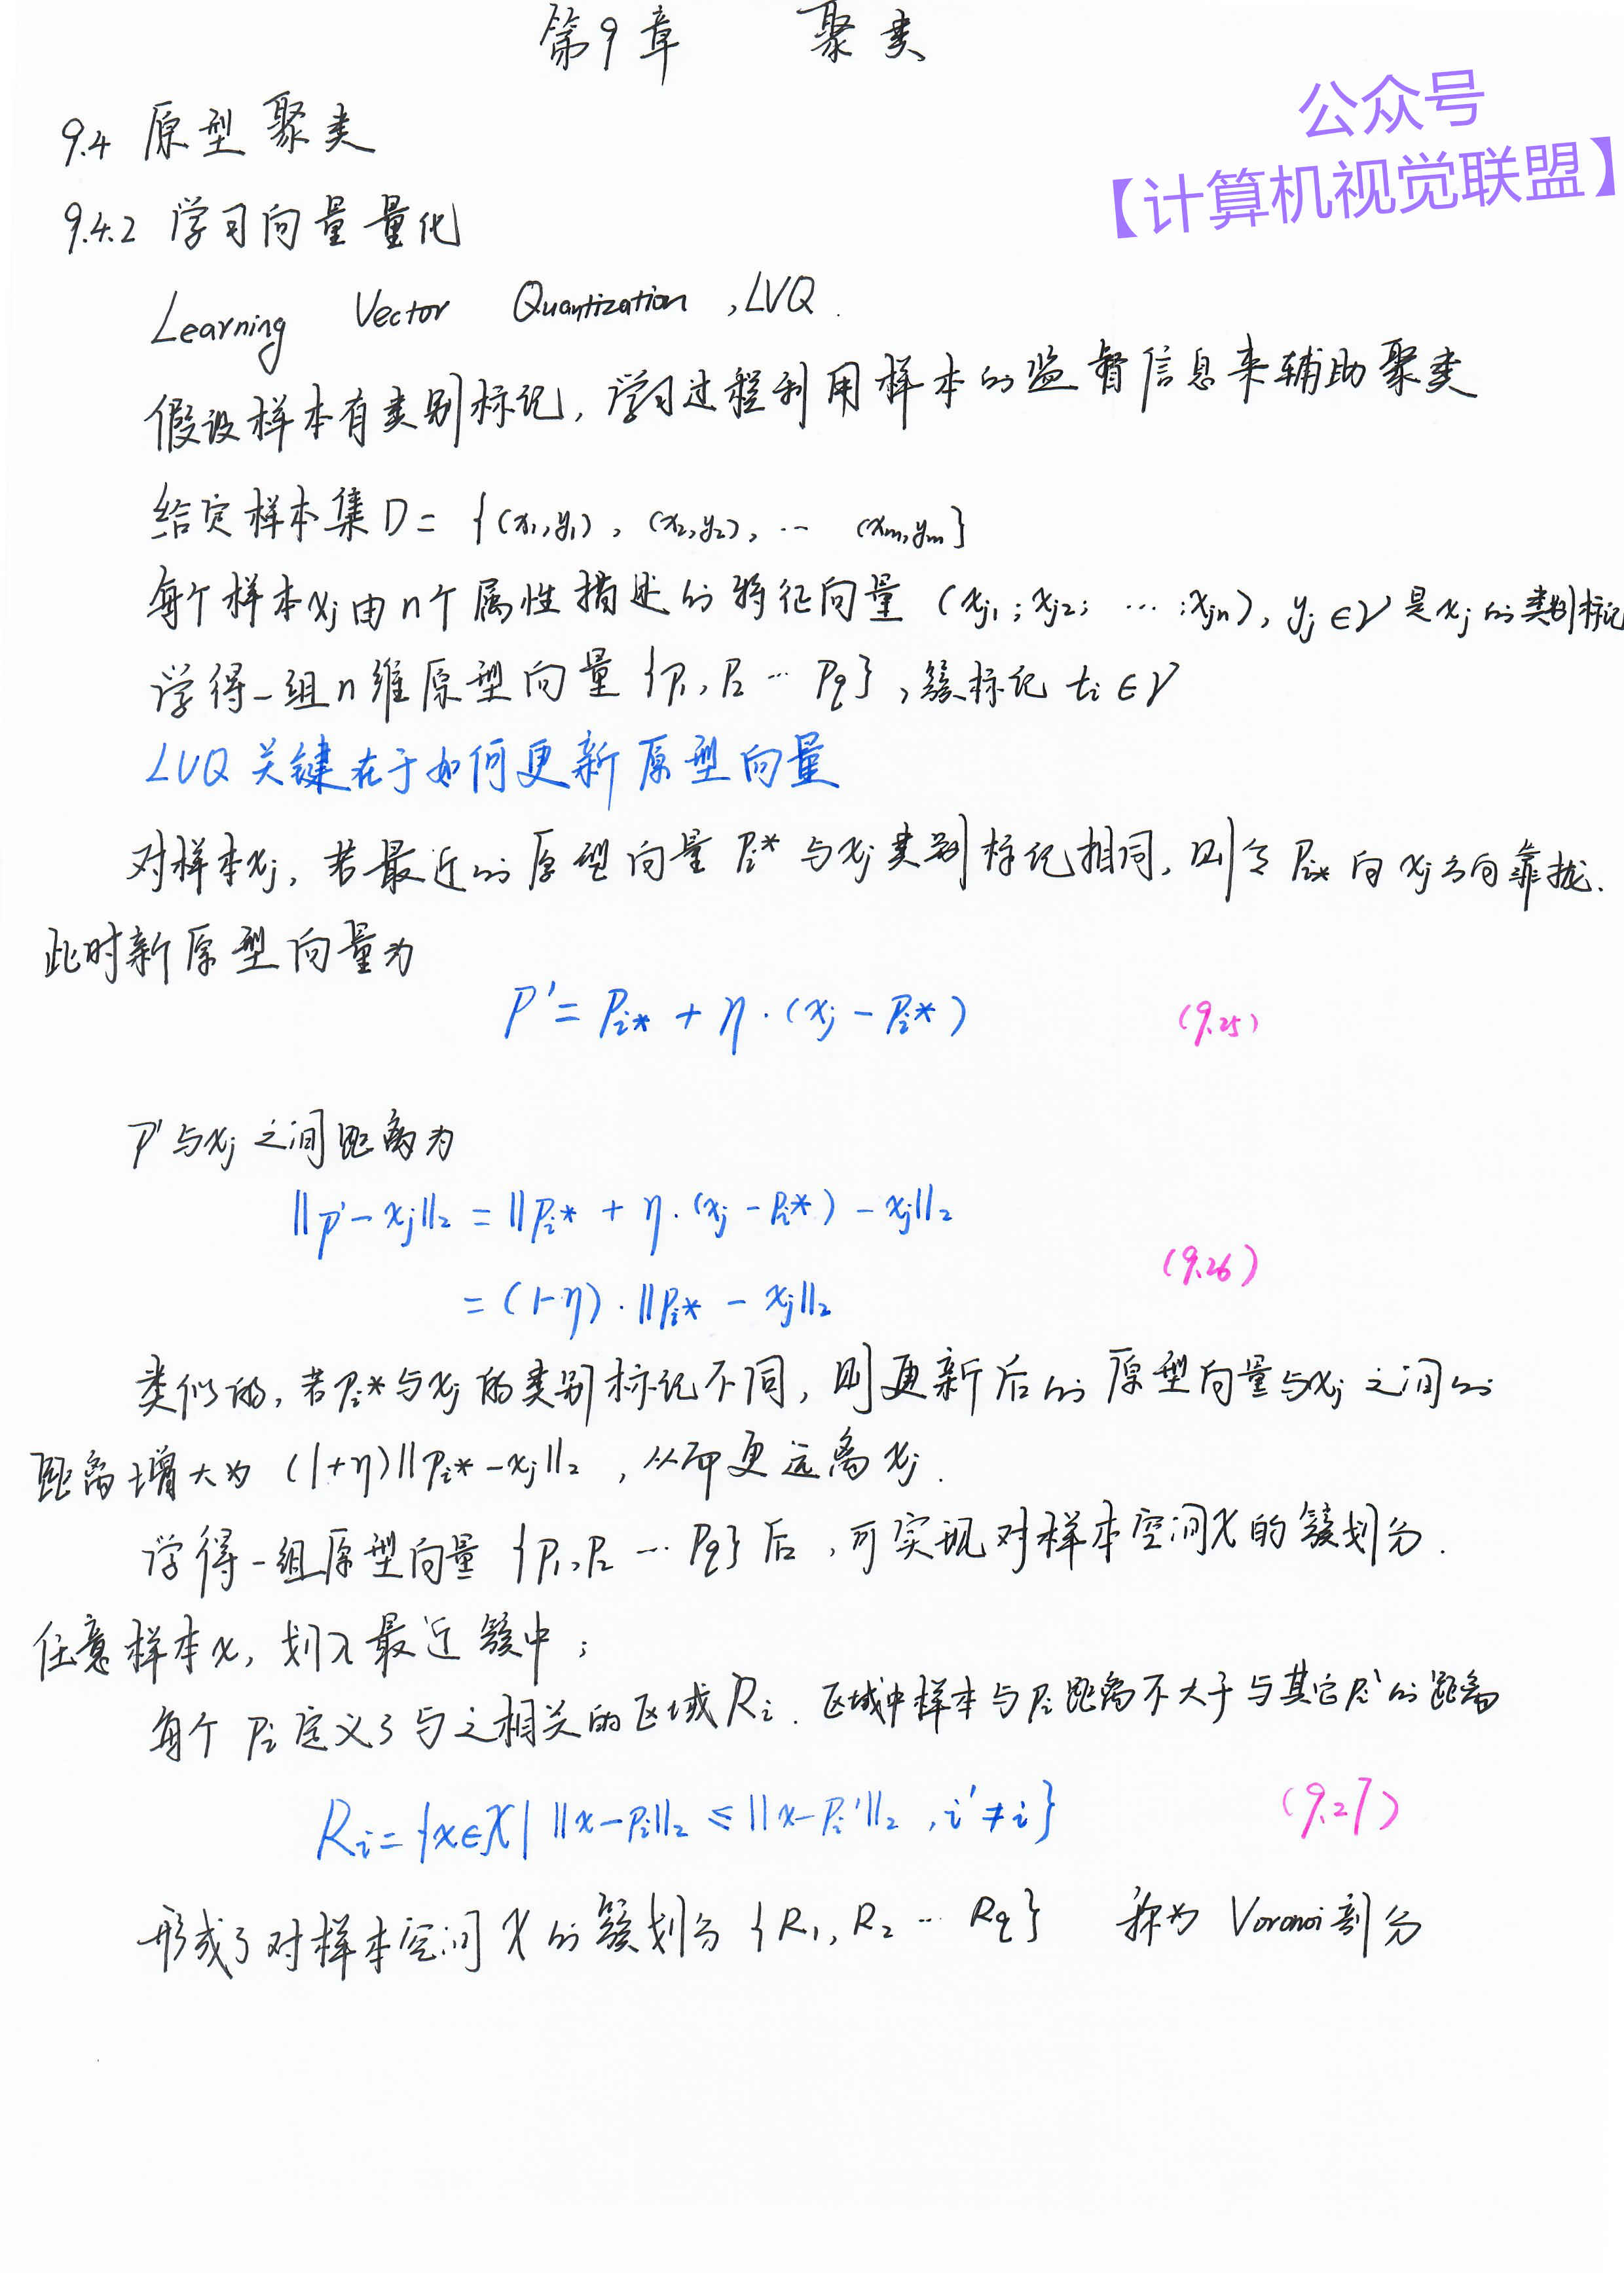 第9章 聚类
公众号
【计算机视觉联盟】
9.4 原型聚类
9.4.2 学习向量量化
Learning Vector Quantization, LVQ.
假设样本有类别标记, 学习过程利用样本的监督信息来辅助聚类
给定样本集D = {(x₁,y₁), (x₂,y₂), … (xₘ,yₘ}
每个样本xⱼ由n个属性描述的特征向量 (xⱼ₁; xⱼ₂; …; xⱼₙ), yⱼ∈𝒴 是xⱼ的类别标记
学得一组n维原型向量 {P₁, P₂ … P_q}, 簇标记 tᵢ∈𝒴
LVQ 关键在于如何更新原型向量
对样本xⱼ, 若最近的原型向量 P_i* 与xⱼ类别标记相同, 则令 P_i* 向xⱼ方向靠拢.
此时新原型向量为
P' = P_i* + η·(xⱼ - P_i*) (9.25)
P'与xⱼ之间距离为
||P' - xⱼ||₂ = ||P_i* + η·(xⱼ - P_i*) - xⱼ||₂
= (1-η)·||P_i* - xⱼ||₂ (9.26)
类似的, 若P_i*与xⱼ的类别标记不同, 则更新后的原型向量与xⱼ之间的
距离增大为 (1+η)||P_i* - xⱼ||₂, 从而更远离xⱼ.
学得一组原型向量 {P₁, P₂ … P_q} 后, 可实现对样本空间χ的簇划分.
任意样本x, 划入最近簇中;
每个 Pᵢ 定义了与之相关的区域Rᵢ. 区域中样本与Pᵢ距离不大于与其它Pᵢ'的距离
Rᵢ = {x∈χ | ||x-Pᵢ||₂ ≤ ||x-Pᵢ'||₂, i'≠i} (9.27)
形成了对样本空间χ的簇划分 {R₁, R₂ … R_q} 称为 Voronoi剖分